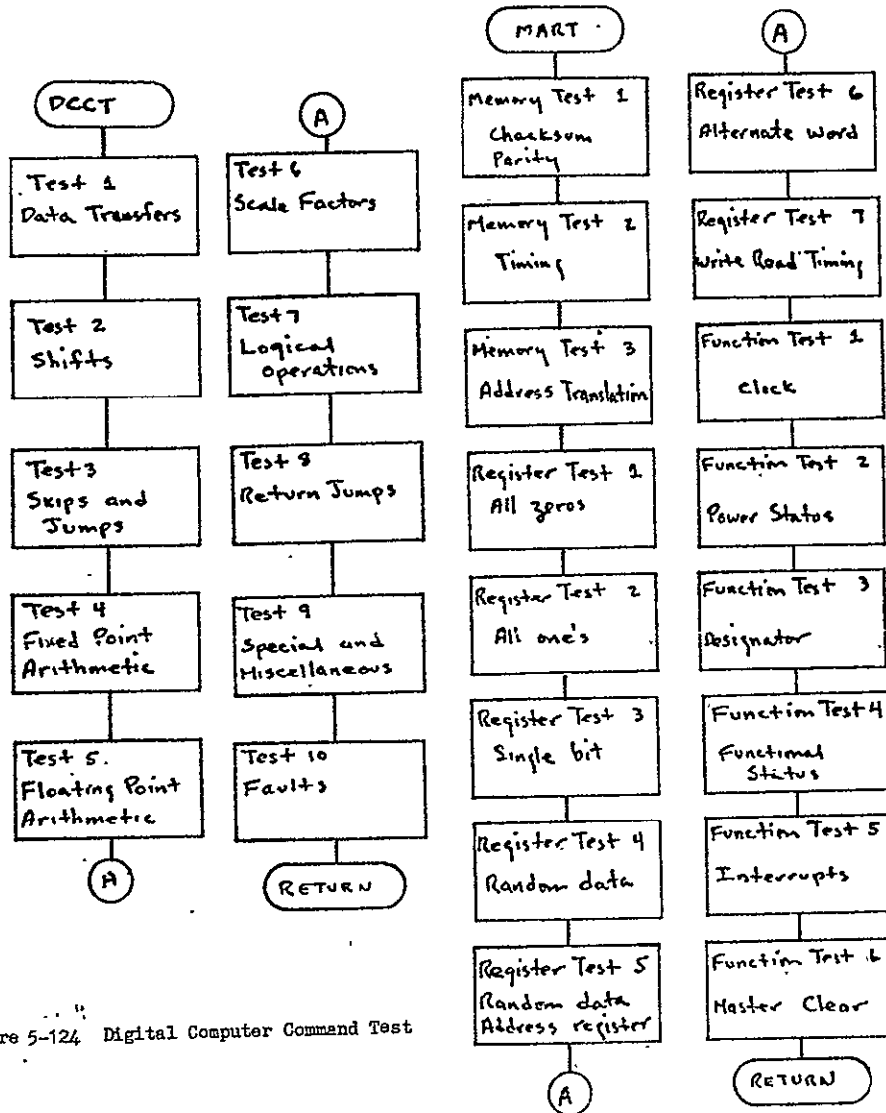 DCCT
Test 1
Data Transfers
Test 2
Shifts
Test 3
Skips and
Jumps
Test 4
Fixed Point
Arithmetic
Test 5.
Floating Point
Arithmetic
A
A
Test 6
Scale Factors
Test 7
Logical
Operations
Test 8
Return Jumps
Test 9
Special and
Miscellaneous
Test 10
Faults
RETURN
re 5-124 Digital Computer Command Test
MART
Memory Test 1
Checksum
Parity
Memory Test 2
Timing
Memory Test 3
Address Translation
Register Test 1
All zeros
Register Test 2
All one's
Register Test 3
Single bit
Register Test 4
Random data
Register Test 5
Random data
Address register
A
A
Register Test 6
Alternate word
Register Test 7
Write Read Timing
Function Test 1
Clock
Function Test 2
Power Status
Function Test 3
Designator
Function Test 4
Functional
Status
Function Test 5
Interrupts
Function Test 6
Master Clear
RETURN